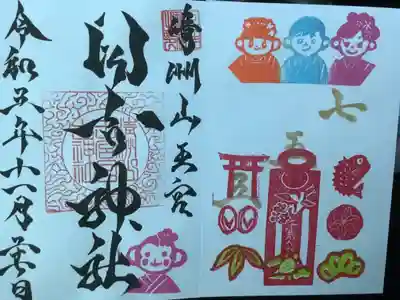 七
五
三
清洲山王宮
日吉神社
令和五年十一月吉日